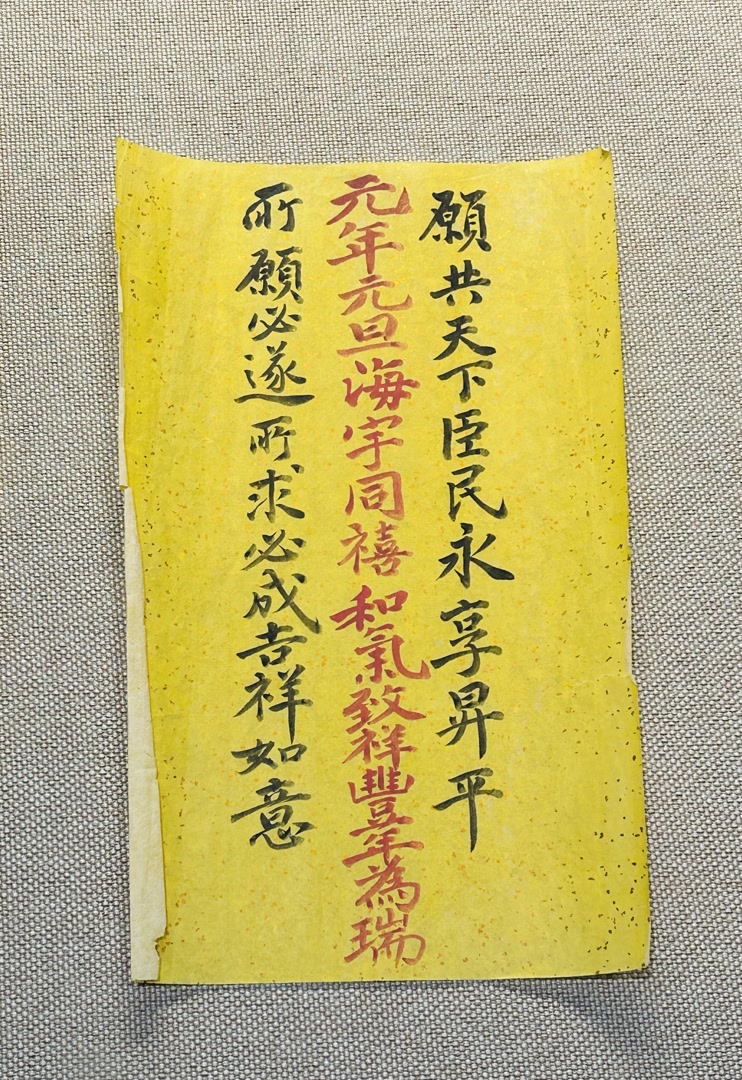 願共天下臣民永享昇平
元年元旦海宇同禧和氣致祥豐年為瑞
所願必遂所求必成吉祥如意